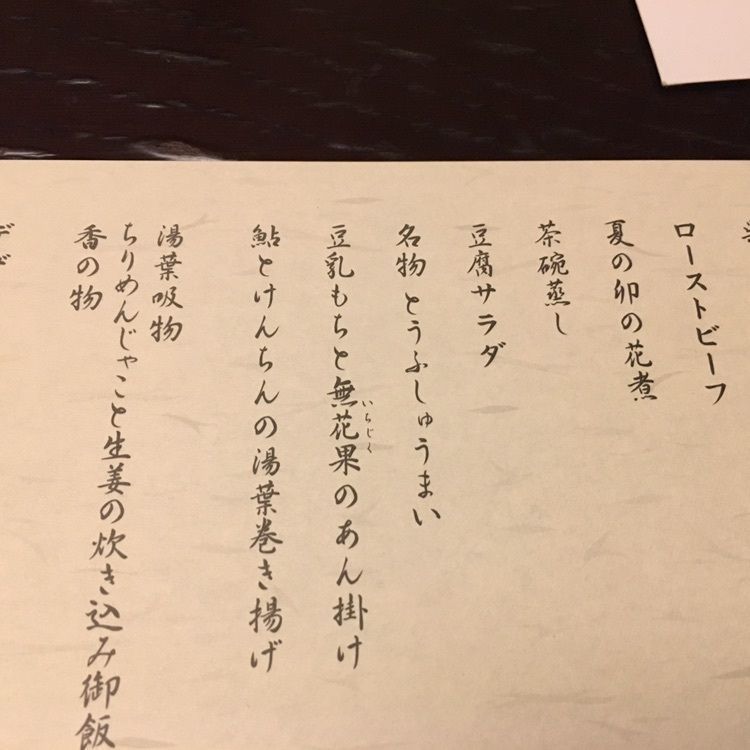 ローストビーフ
夏の卯の花煮
茶碗蒸し
豆腐サラダ
名物 とうふしゅうまい
豆乳もちと無花果のあん掛け
いちじく
鮎とけんちんの湯葉巻き揚げ
湯葉吸物
ちりめんじゃこと生姜の炊き込み御飯
香の物
デザ